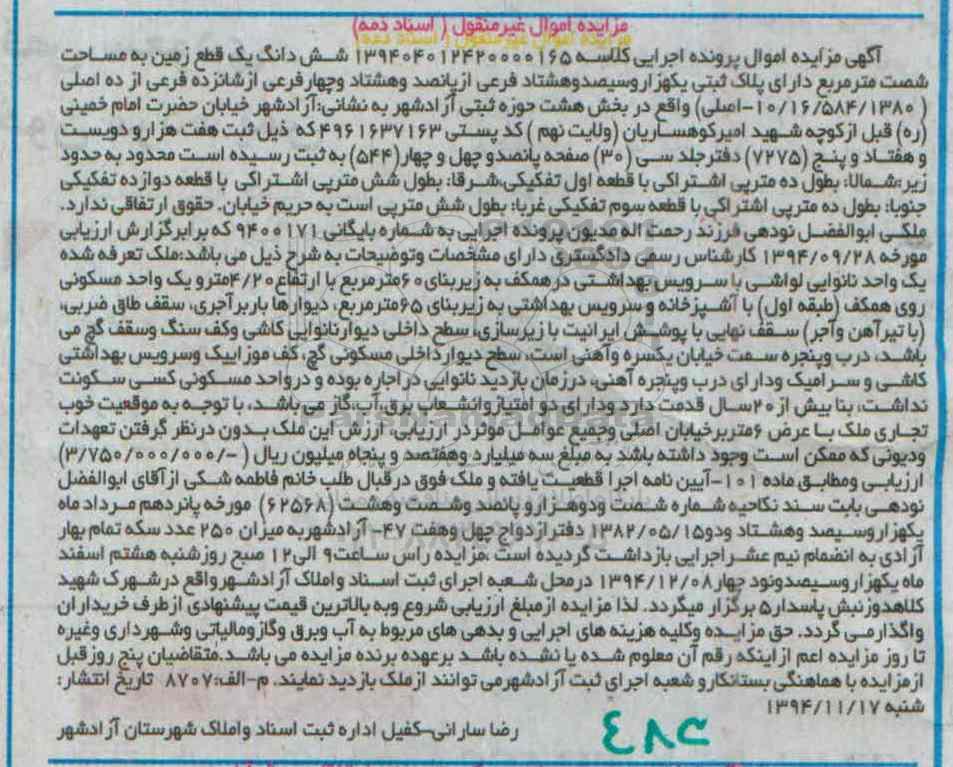 مزایده اموال غیرمنقول ( اسناد ذمه)
آگهی مزایده اموال پرونده اجرایی کلاسه ۱۳۹۴۰۴۰۱۲۴۲۰۰۰۰۱۶۵ شش دانگ یک قطع زمین به مساحت
شصت مترمربع دارای پلاک ثبتی یکهزاروسیصدوهشتاد فرعی ازپانصد وهشتاد وچهارفرعی ازشانزده فرعی از ده اصلی
( ۱۰/۱۶/۵۸۴/۱۳۸۰-اصلی) واقع در بخش هشت حوزه ثبتی آزادشهر به نشانی:آزادشهر خیابان حضرت امام خمینی
(ره) قبل ازکوچه شهید امیرکوهساریان (ولایت نهم ) کد پستی ۴۹۶۱۶۳۷۱۶۳ که ذیل ثبت هفت هزارو دویست
و هفتاد و پنج (۷۲۷۵) دفترجلد سی (۳۰) صفحه پانصدو چهل و چهار(۵۴۴) به ثبت رسیده است محدود به حدود
زیر:شمالا: بطول ده مترپی اشتراکی با قطعه اول تفکیکی،شرقا: بطول شش مترپی اشتراکی با قطعه دوازده تفکیکی
جنوبا: بطول ده مترپی اشتراکی با قطعه سوم تفکیکی غربا: بطول شش مترپی است به حریم خیابان. حقوق ارتفاقی ندارد.
ملکی ابوالفضل نودهی فرزند رحمت اله مدیون پرونده اجرایی به شماره بایگانی ۹۴۰۰۱۷۱ که برابرگزارش ارزیابی
مورخه ۱۳۹۴/۰۹/۲۸ کارشناس رسمی دادگستری دارای مشخصات وتوضیحات به شرح ذیل می باشد:ملک تعرفه شده
یک واحد نانوایی لواشی با سرویس بهداشتی درهمکف به زیربنای ۶۰مترمربع با ارتفاع ۴/۲۰مترو یک واحد مسکونی
روی همکف (طبقه اول) با آشپزخانه و سرویس بهداشتی به زیربنای ۶۵مترمربع، دیوارها باربرآجری، سقف طاق ضربی،
(با تیرآهن وآجر) سقف نهایی با پوشش ایرانیت با زیرسازی، سطح داخلی دیوارنانوایی کاشی وکف سنگ وسقف گچ می
باشد، درب وپنجره سمت خیابان یکسره وآهنی است، سطح دیوارداخلی مسکونی گچ، کف موزاییک وسرویس بهداشتی
کاشی و سرامیک ودارای درب وپنجره آهنی، درزمان بازدید نانوایی دراجاره بوده و درواحد مسکونی کسی سکونت
نداشت، بنا بیش از ۲۰سال قدمت دارد ودارای دو امتیازوانشعاب برق،آب،گاز می باشد، با توجه به موقعیت خوب
تجاری ملک با عرض ۶متربرخیابان اصلی وجمیع عوامل موثردر ارزیابی، ارزش این ملک بدون درنظر گرفتن تعهدات
ودیونی که ممکن است وجود داشته باشد به مبلغ سه میلیارد وهفتصد و پنجاه میلیون ریال ( -/۳/۷۵۰/۰۰۰/۰۰۰)
ارزیابی ومطابق ماده ۱۰۱-آیین نامه اجرا قطعیت یافته و ملک فوق درقبال طلب خانم فاطمه شکی ازآقای ابوالفضل
نودهی بابت سند نکاحیه شماره شصت ودوهزارو پانصد وشصت وهشت (۶۲۵۶۸) مورخه پانزدهم مرداد ماه
یکهزاروسیصد وهشتاد ودو۱۳۸۲/۰۵/۱۵ دفترازدواج چهل وهفت ۴۷- آزادشهربه میزان ۲۵۰ عدد سکه تمام بهار
آزادی به انضمام نیم عشراجرایی بازداشت گردیده است ،مزایده راس ساعت۹ الی۱۲ صبح روزشنبه هشتم اسفند
ماه یکهزاروسیصدونود چهار۱۳۹۴/۱۲/۰۸ درمحل شعبه اجرای ثبت اسناد و املاک آزادشهرواقع درشهرک شهید
کلاهدوزنبش پاسدار۵ برگزار میگردد. لذا مزایده ازمبلغ ارزیابی شروع وبه بالاترین قیمت پیشنهادی ازطرف خریداران
واگذارمی گردد. حق مزایده وکلیه هزینه های اجرایی و بدهی های مربوط به آب وبرق وگازومالیاتی وشهرداری وغیره
تا روز مزایده اعم ازاینکه رقم آن معلوم شده یا نشده باشد برعهده برنده مزایده می باشد.متقاضیان پنج روزقبل
ازمزایده با هماهنگی بستانکارو شعبه اجرای ثبت آزادشهرمی توانند ازملک بازدید نمایند. م-الف:۸۷۰۷ تاریخ انتشار:
شنبه ۱۳۹۴/۱۱/۱۷
رضا سارانی-کفیل اداره ثبت اسناد واملاک شهرستان آزادشهر